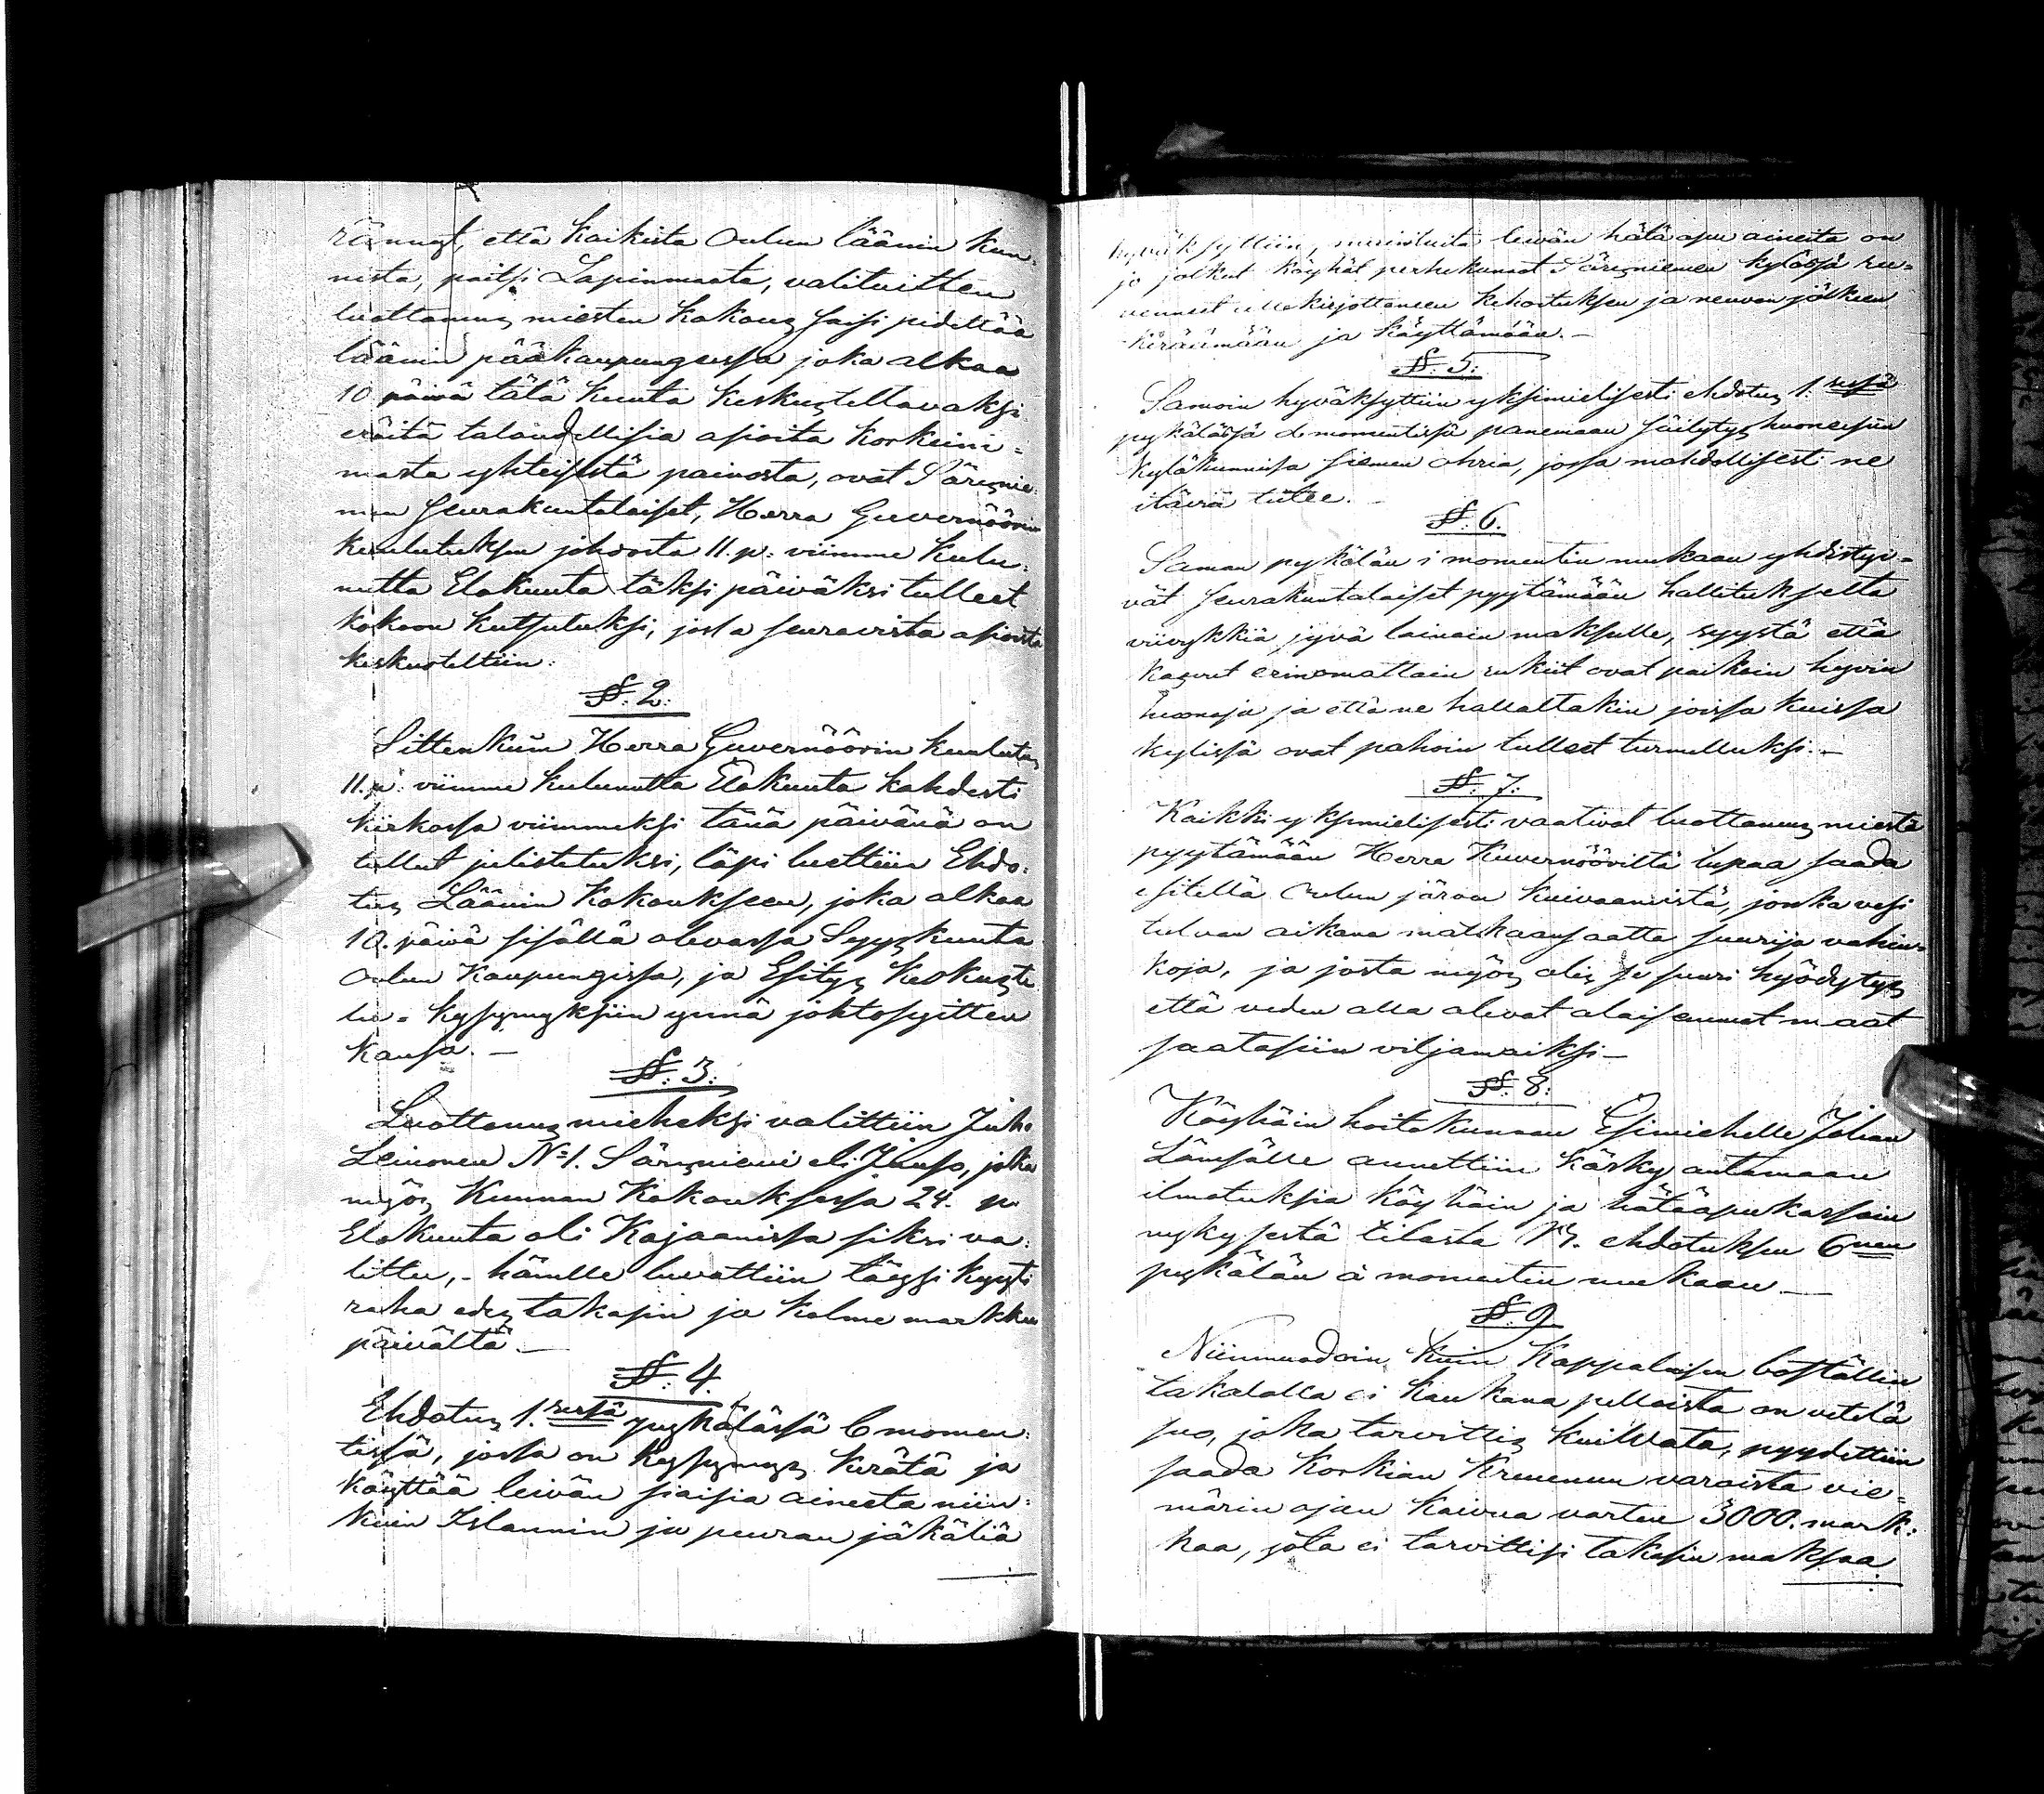 rännyt, että kaikista Oulun läänin kun-
nista, paitsi Lapinmaata, valituitten
luottamus miesten kokous saisi pidettää
läänin pääkaupungissa joka alkaa
10 päivä tätä kuuta keskusteltavaksi
eräitä taloudellisia asioita korkeim-
masta yhteisestä painosta, ovat Säräisnie-
men seurakuntalaiset, Herra Guvernöörin
kuulutuksen johdosta 11. p: viimme kulu-
nutta Elokuuta täksi päiväksi tulleet
kokoon kutsutuksi, jossa seuraavista asioista
keskusteltiin:
§: 2:
Sittenkuin Herra Guvernöörin kuulutus
11. p: viimme kulunutta Elokuuta kahdesti
kirkossa viimmeksi tänä päivänä on
tullut julistetuksi, läpi luettiin Ehdo-
tus Läänin Kokoukseen, joka alkaa
10. päivä sisällä olevassa Syyskuuta
Oulun Kaupungissa, ja Esitys keskuste
lu- kysymyksiin ynnä johtosyitten
kansa. —
§: 3:
Luottamus mieheksi valittiin Juho
Leinonen No 1. Säräisniemi eli Jauso, joka
myös Kunnan Kokouksessa 24. p.
Elokuuta oli Kajaanissa siksi va-
littu, - hänelle luvattiin täysi kyyti
raha edes takasin ja kolme markkaa
päivältä. —
§: 4.
Ehdotus 1.sessä pykälässä C momen-
tissä, jossa on kysymys kerätä ja
käyttää leivän siaisia aineeta niin-
kuin Islannin ja peuran jäkäliä
hyväksyttiin, muistuita leivän hätä apu aineita on
jo jotkut köyhät perhekunnat Säräisniemen kylässä ru-
venneet allekirjottaneen kehoituksen ja neuvon jälkeen
keräämään ja käyttämään. —
§: 5:
Samoin hyväksyttiin yksimielisesti ehdotus 1:sessä
pykälässä d momentissä panemaan säilytys huoneisiin
kyläkunnissa siemen ohria, jossa mahdollisesti ne
itäviä tulee. —
§: 6.
Saman pykälän i momentin mukaan yhdistyi-
vät seurakuntalaiset pyytämään hallitukselta
viivykkiä jyvä lainain maksulle, syystä että
kasvut erinomattain rukiit ovat paikoin hyvin
huonoja ja että ne hallaltakin joissa kuissa
kylissä ovat pahoin tulleet turmelluksi. —
§: 7:
Kaikki yksimielisesti vaativat luottamus miestä
pyytämään Herra Kuvernööriltä lupaa saada
esitellä Oulun järven kuivaamista, jonka vesi
tulvan aikana matkaansaatta suurija vahin-
koja, ja josta myös olis se suuri hyödytys
että veden alla olevat alaisemmat maat
saatasiin viljamaiksi —
§: 8:
Köyhäin hoitokunnan Esimiehelle Johan
Lämsälle annettiin käsky antamaan
ilmotuksia köyhäin ja hätäapukassain
nykysestä tilasta Ks. ehdotuksen 6nen
pykälän à momentin mukaan —
§: 9
Niinmuodoin kuin Kappalaisen boställin
takalalla ei kaukana pelloista on vetelä
suo, joka tarvittis kuivata, pyydettiin
saada Korkian Kruunun varoista vie-
märin ojan kaivua varten 3000. mark-
kaa, jota ei tarvittisi takasin maksaa